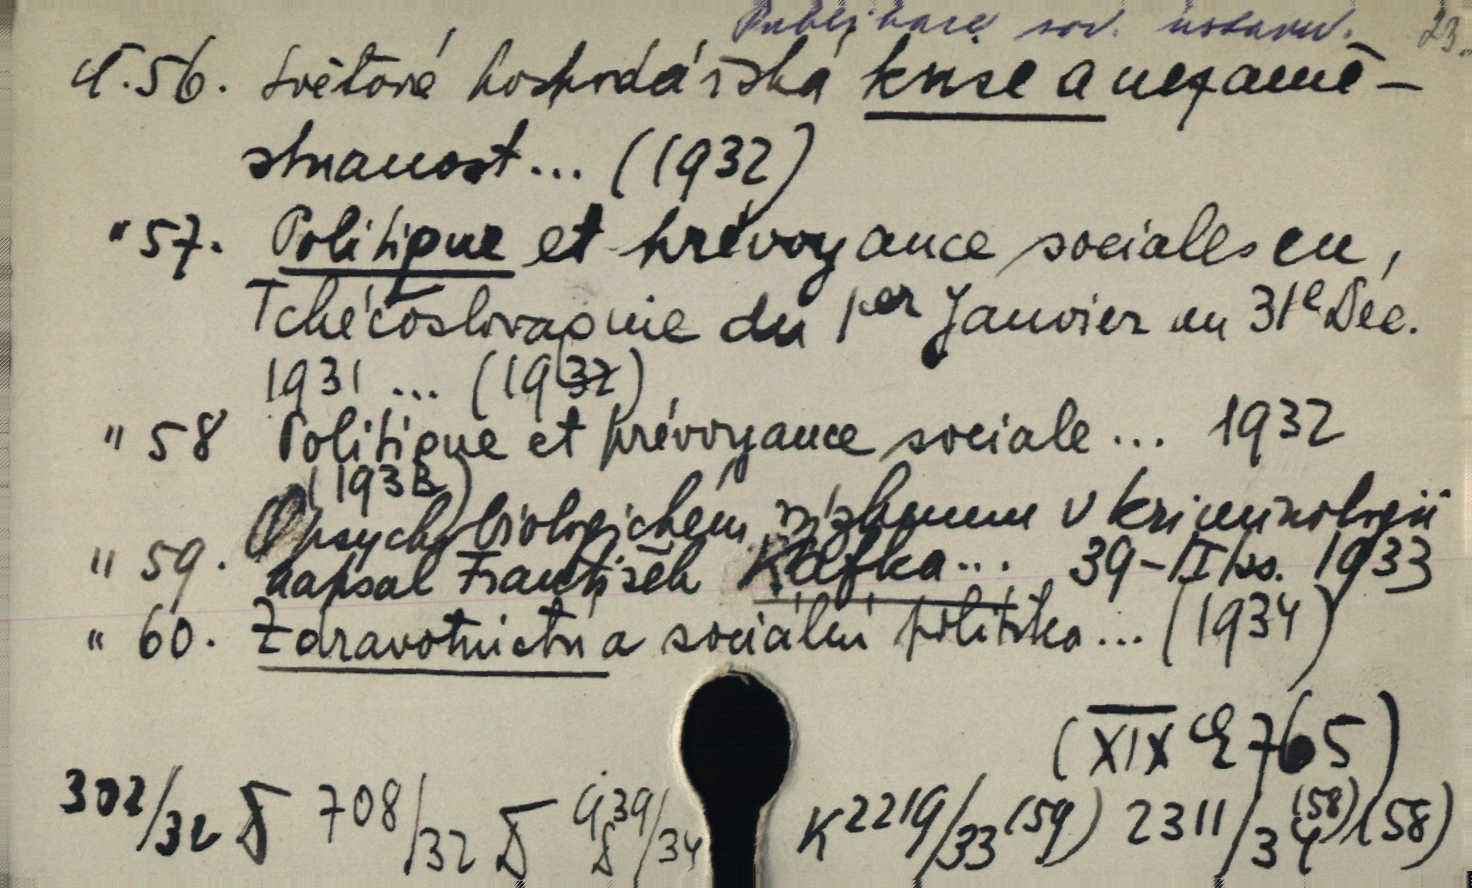 Publikace soc. ústavu. 23.
Č.56. Světová hospodářská krise a nezamě-
stnanost... (1932)
" 57. Politique et prévoyance sociales en,
Tchécoslovaquie du 1er Janvier au 31e Déc.
1931 ... (1932)
" 58 Politique et prévoyance sociale ... 1932
(1933)
" 59. O psychobiologickém výzkumu v kriminologii
napsal František Kafka... 39-II ks. 1933
" 60. Zdravotnictví a sociální politika... (1934)
(XIX E 765)
302/32 D 708/32 D 939/34 K 2219/33 (59) 2311/34 (58) (58)